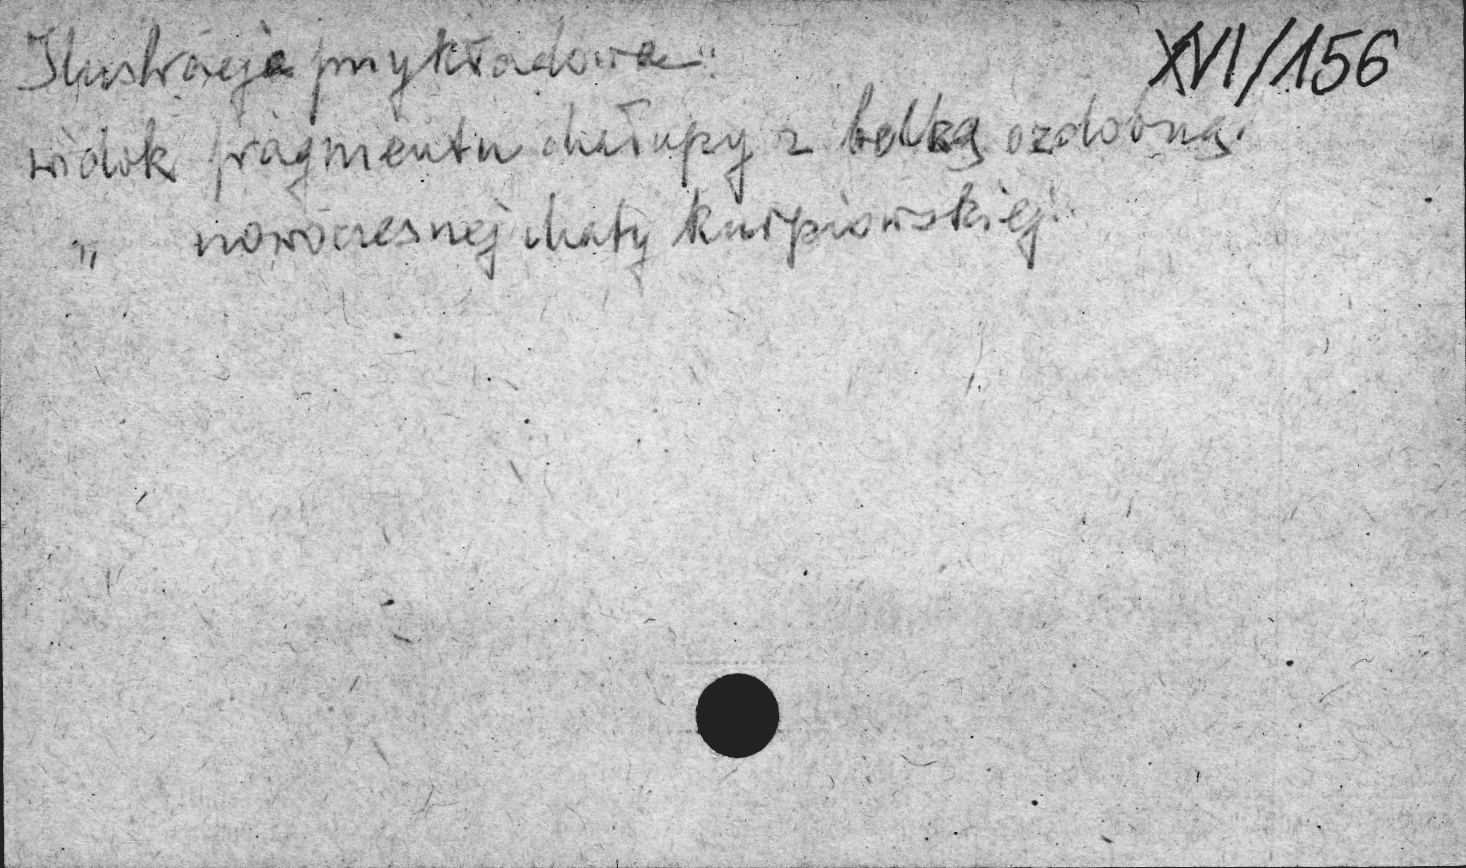 Ilustracja przykładowa": XVI/156
widok fragmentu chałupy z belką ozdobną.
" nowoczesnej chaty kurpiowskiej.